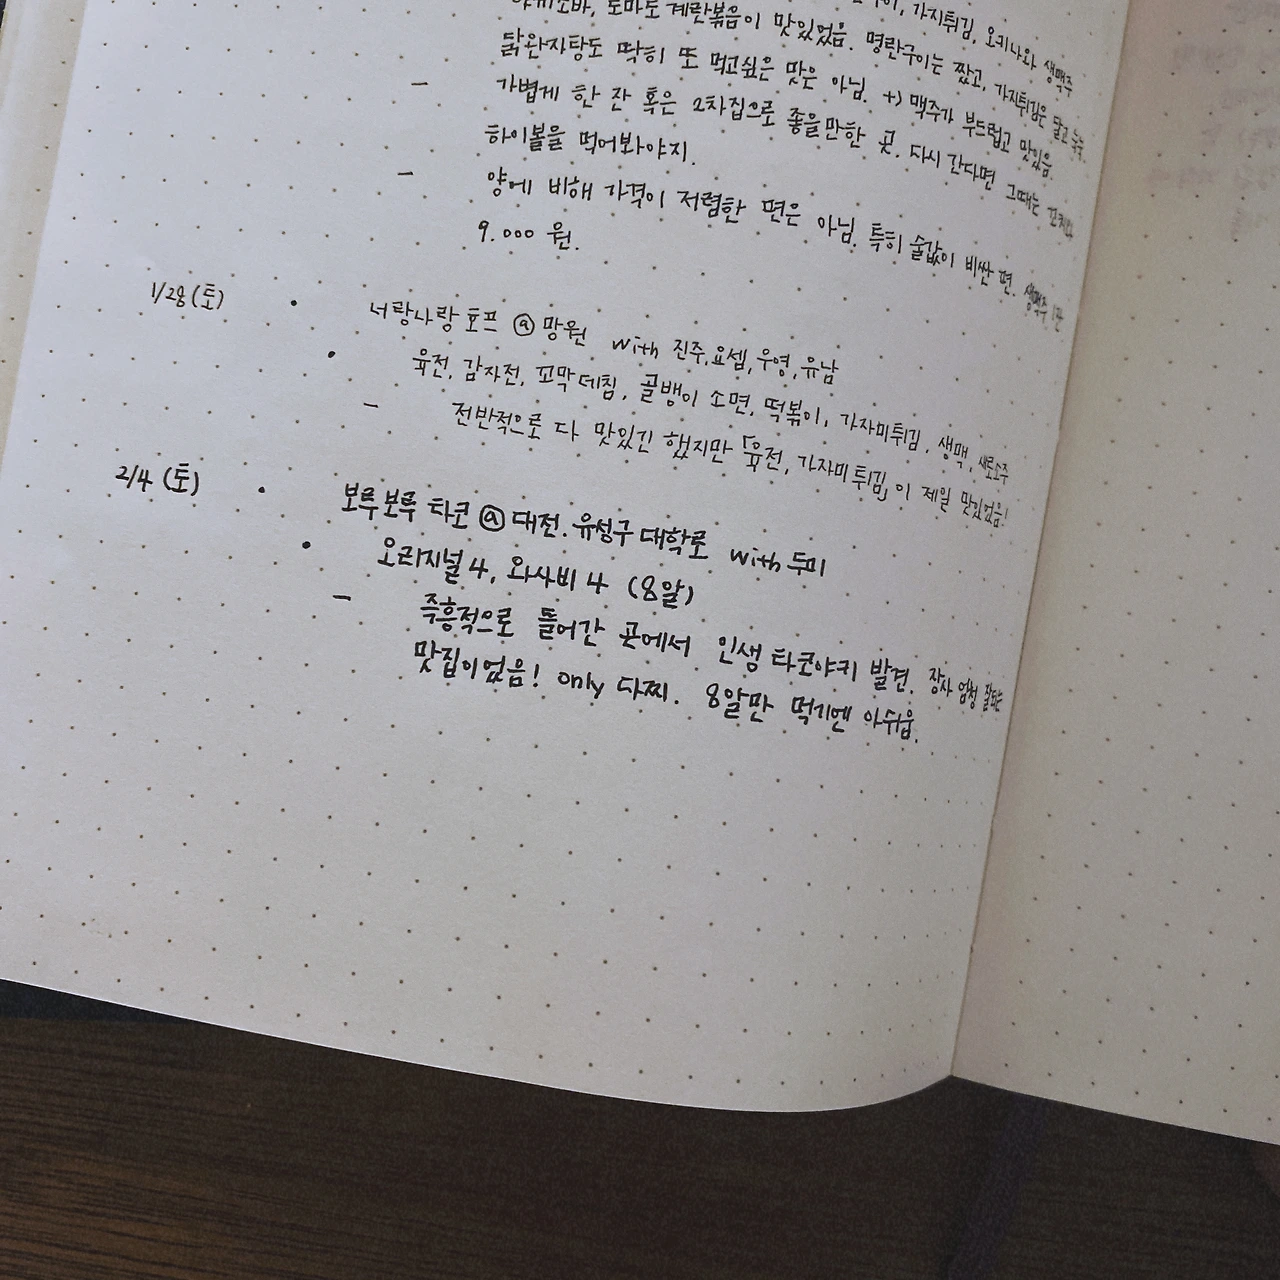 가지튀김, 오키나와 생맥주
야끼소바, 토마토 계란볶음이 맛있었음. 명란구이는 짰고, 가지튀김은 달고 눅눅.
닭완자탕도 딱히 또 먹고싶은 맛은 아님. +) 맥주가 부드럽고 맛있음.
- 가볍게 한 잔 혹은 2차집으로 좋을만한 곳. 다시 간다면 그때는
하이볼을 먹어봐야지.
- 양에 비해 가격이 저렴한 편은 아님. 특히 술값이 비싼 편. 생맥주 1잔
9.000 원.
1/28(토) • 너랑나랑호프 @ 망원 with 진주,요셉,우영,유남
• 육전, 감자전, 꼬막데침, 골뱅이 소면, 떡볶이, 가자미튀김, 생맥, 새로소주
- 전반적으로 다 맛있긴 했지만 「육전, 가자미튀김」이 제일 맛있었음!
2/4 (토) • 보루보루 타코 @ 대전. 유성구 대학로 with 두미
• 오리지널 4, 와사비 4 (8알)
- 즉흥적으로 들어간 곳에서 인생 타코야키 발견. 장사 엄청 잘되는
맛집이었음! only 다찌. 8알만 먹기엔 아쉬웁.